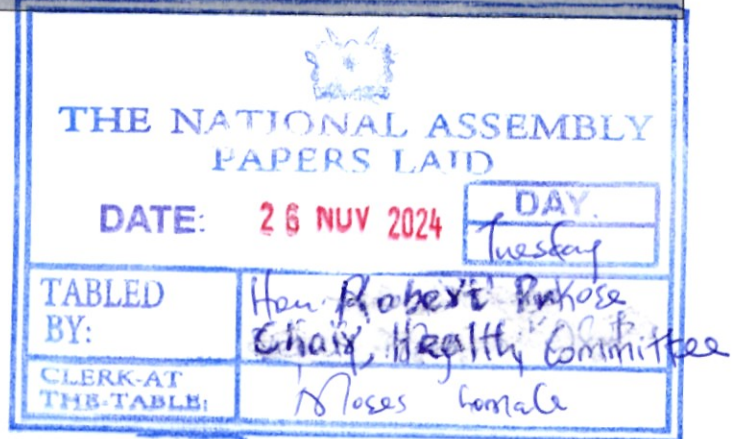 THE NATIONAL ASSEMBLY
PAPERS LAID
DATE: 26 NOV 2024
DAY.
Tuesday
TABLED BY:
Hon. Robert Pukose
Chair, Health Committee
CLERK-AT THE-TABLE:
Moses